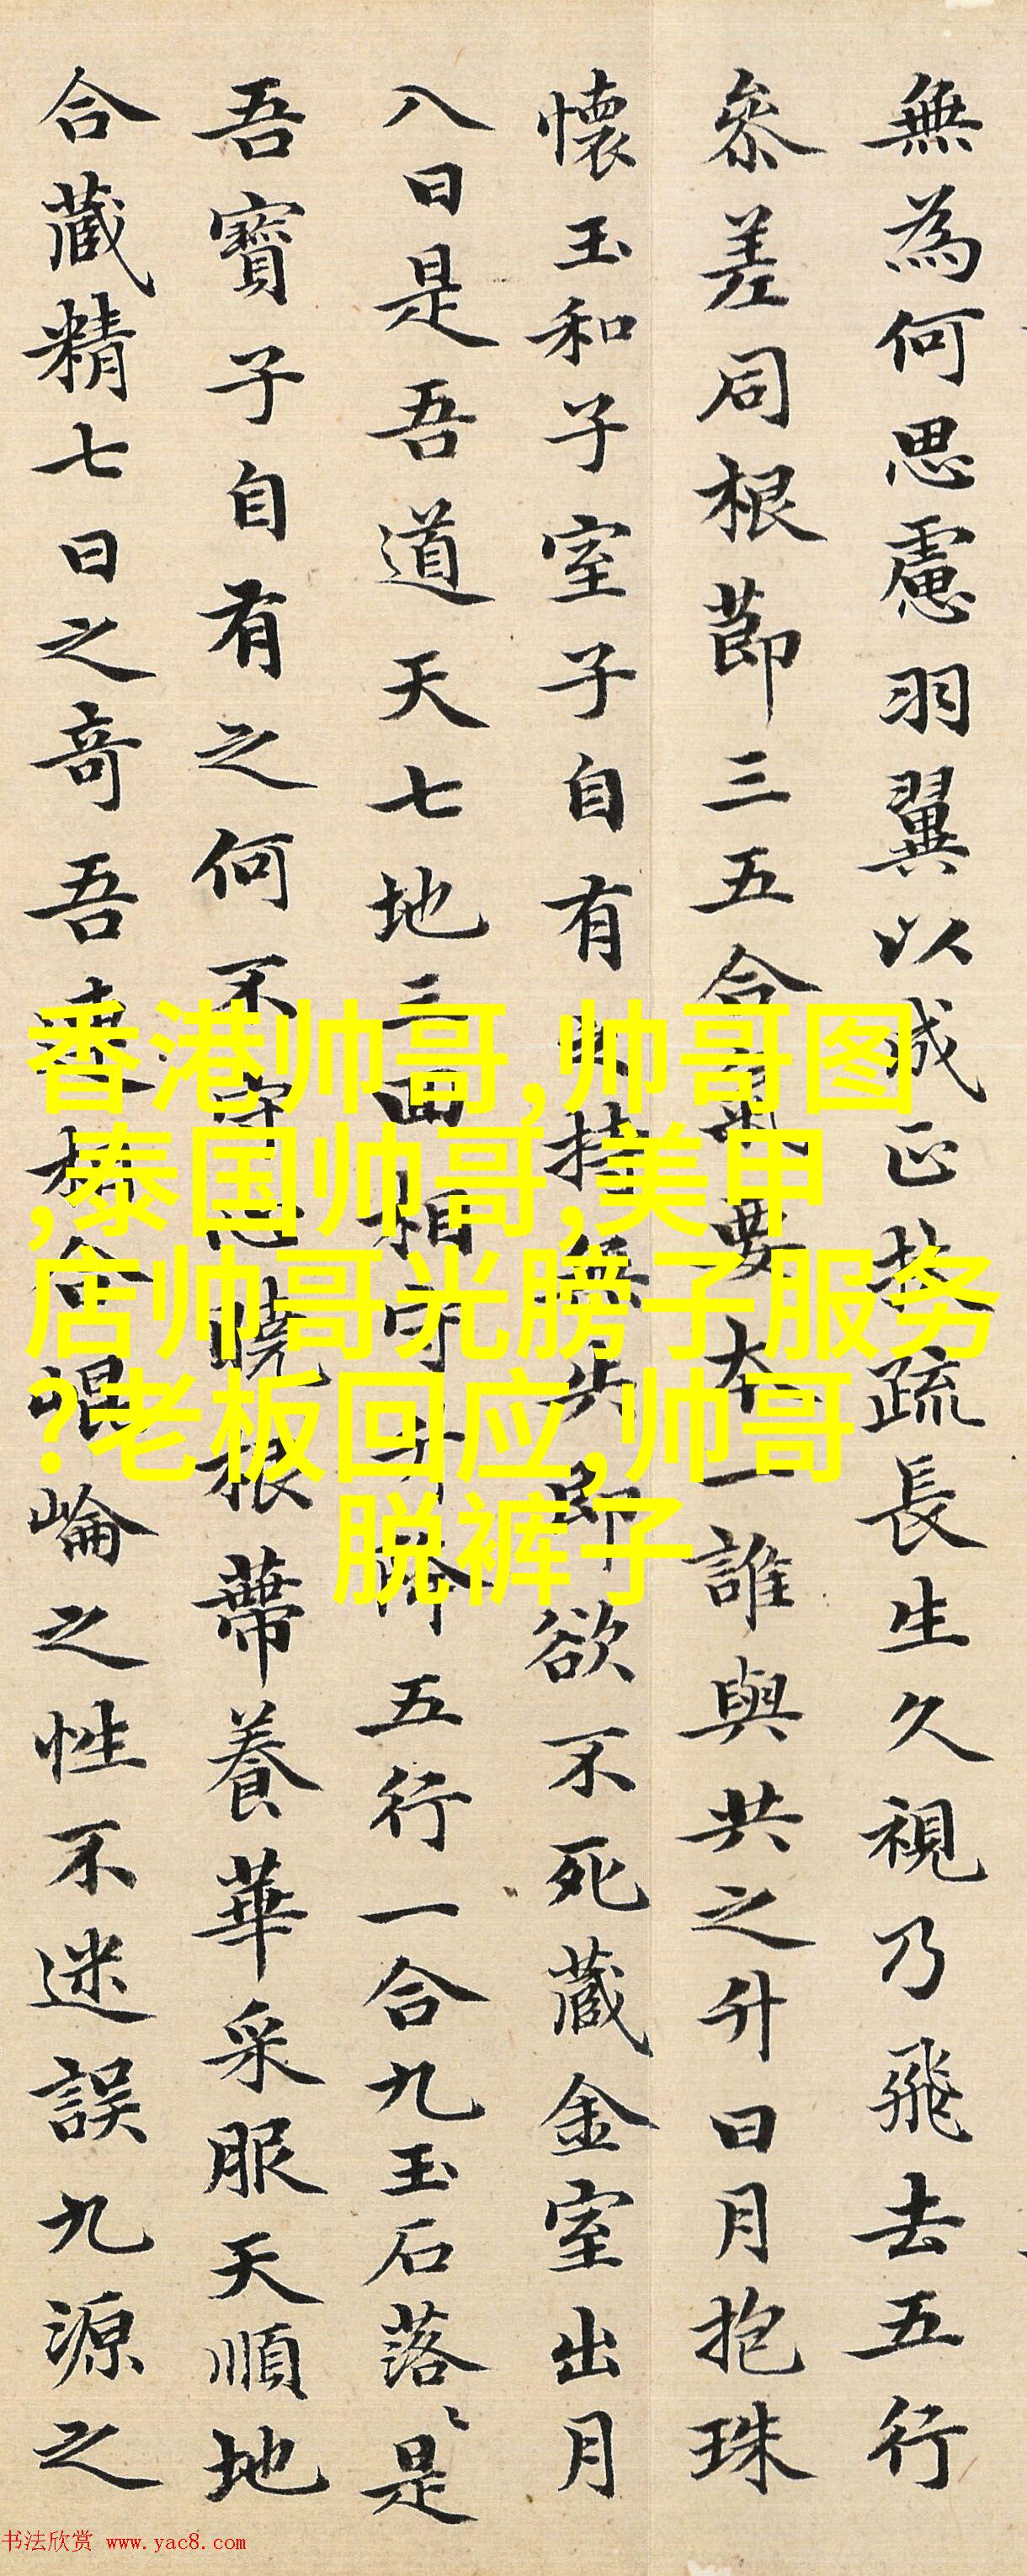 無為何思慮羽翼以成正扶疏長生久視乃飛去五行
參差同根節三五合氣要本一誰與共之升日月抱珠
懷玉和子室子自有之持無失即欲不死藏金室出月
八日是吾道天七地三回相守升降五行一合九玉石落〻是
吾寶子自有之何不守心曉根蔕養華采服天順地
合藏精七日之奇吾連相合崐崘之性不迷誤九源之
香港帅哥,帅哥图
,泰国帅哥,美甲
店帅哥光膀子服务
?老板回应,帅哥
脱裤子
书法欣赏 www.yac8.com